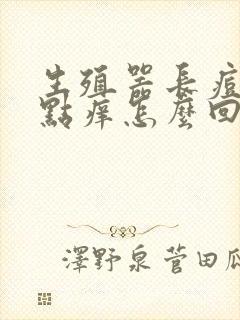 生殖器長痘
點癢怎麼回
澤野泉菅田瓜